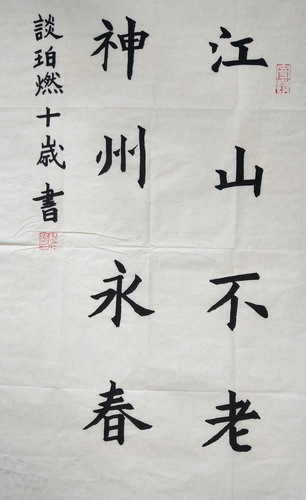 江山不老
神州永春
談珀燃十歲書